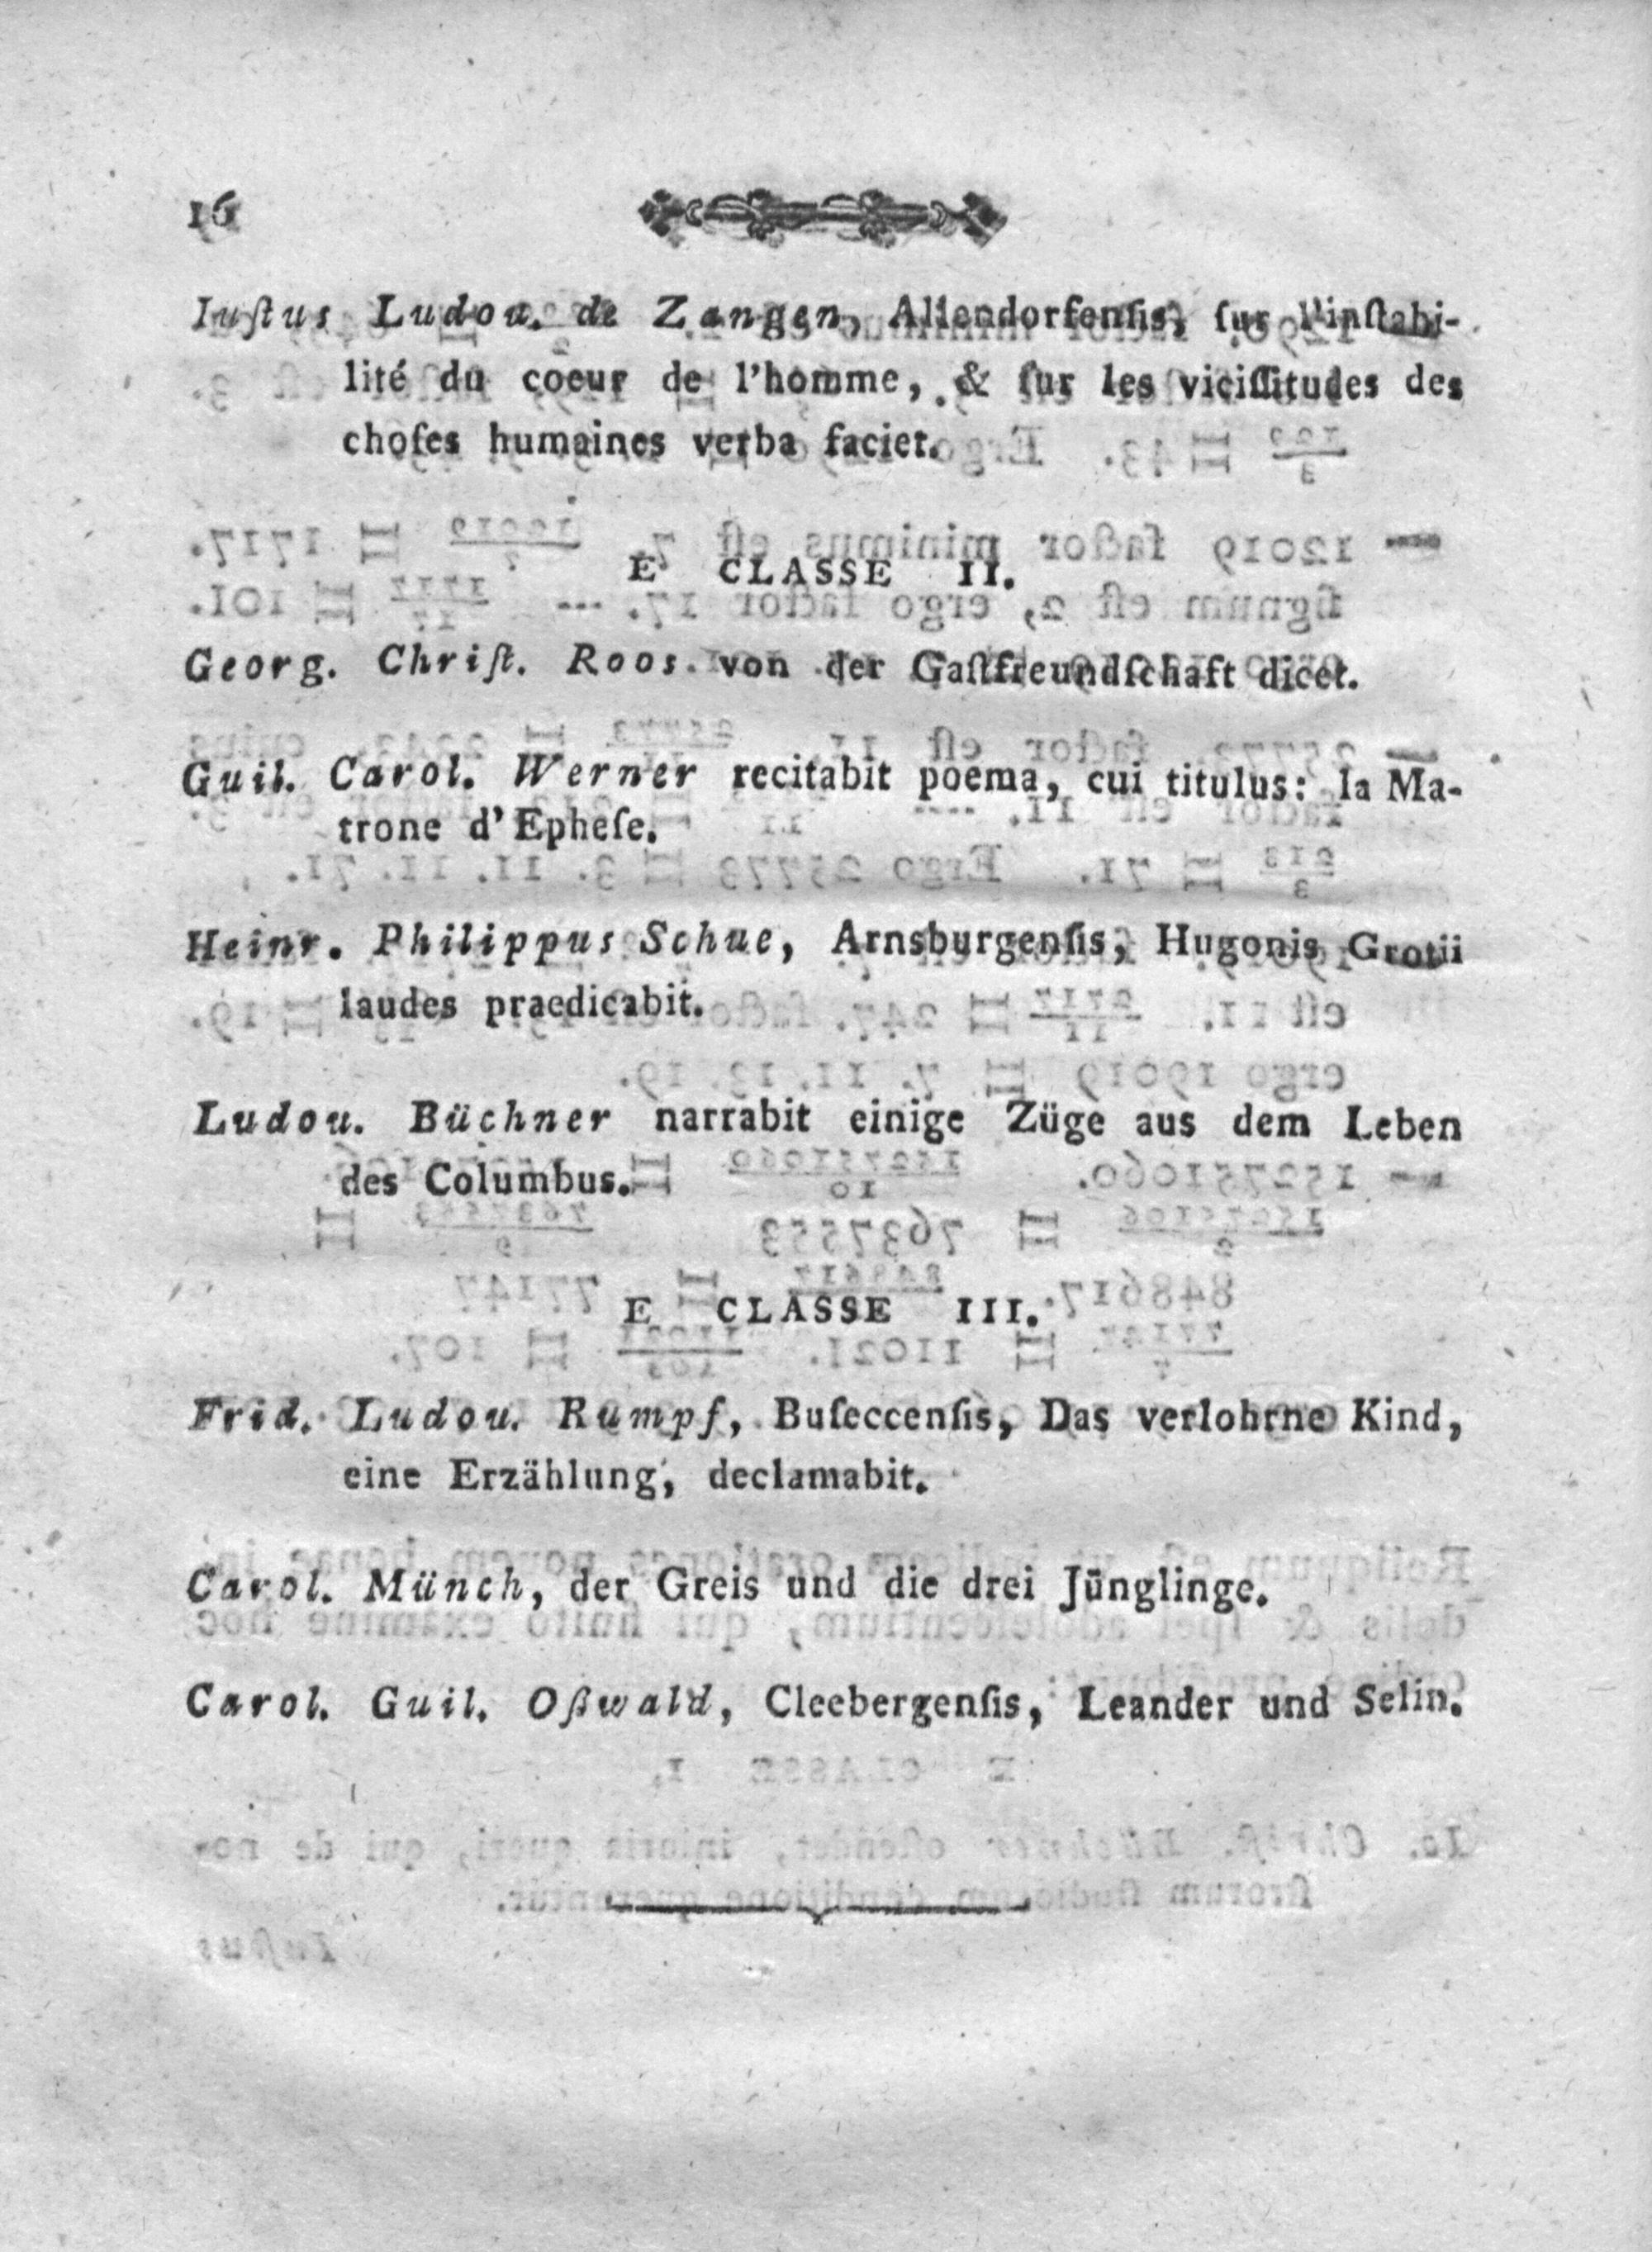 16
Iuſtus Ludou. de Zangen, Allendorfenſis, ſur l'inſtabi-
lité du coeur de l'homme, & ſur les viciſſitudes des
choſes humaines verba faciet.
E CLASSE II.
Georg. Chriſt. Roos von der Gaſtfreundſchaft dicet.
Guil. Carol. Werner recitabit poema, cui titulus: la Ma-
trone d'Epheſe.
Heinr. Philippus Schue, Arnsburgenſis, Hugonis Grotii
laudes praedicabit.
Ludou. Büchner narrabit einige Züge aus dem Leben
des Columbus.
E CLASSE III.
Frid. Ludou. Rumpf, Buſeccenſis, Das verlohrne Kind,
eine Erzählung, declamabit.
Carol. Münch, der Greis und die drei Jünglinge.
Carol. Guil. Oßwald, Cleebergenſis, Leander und Selin.